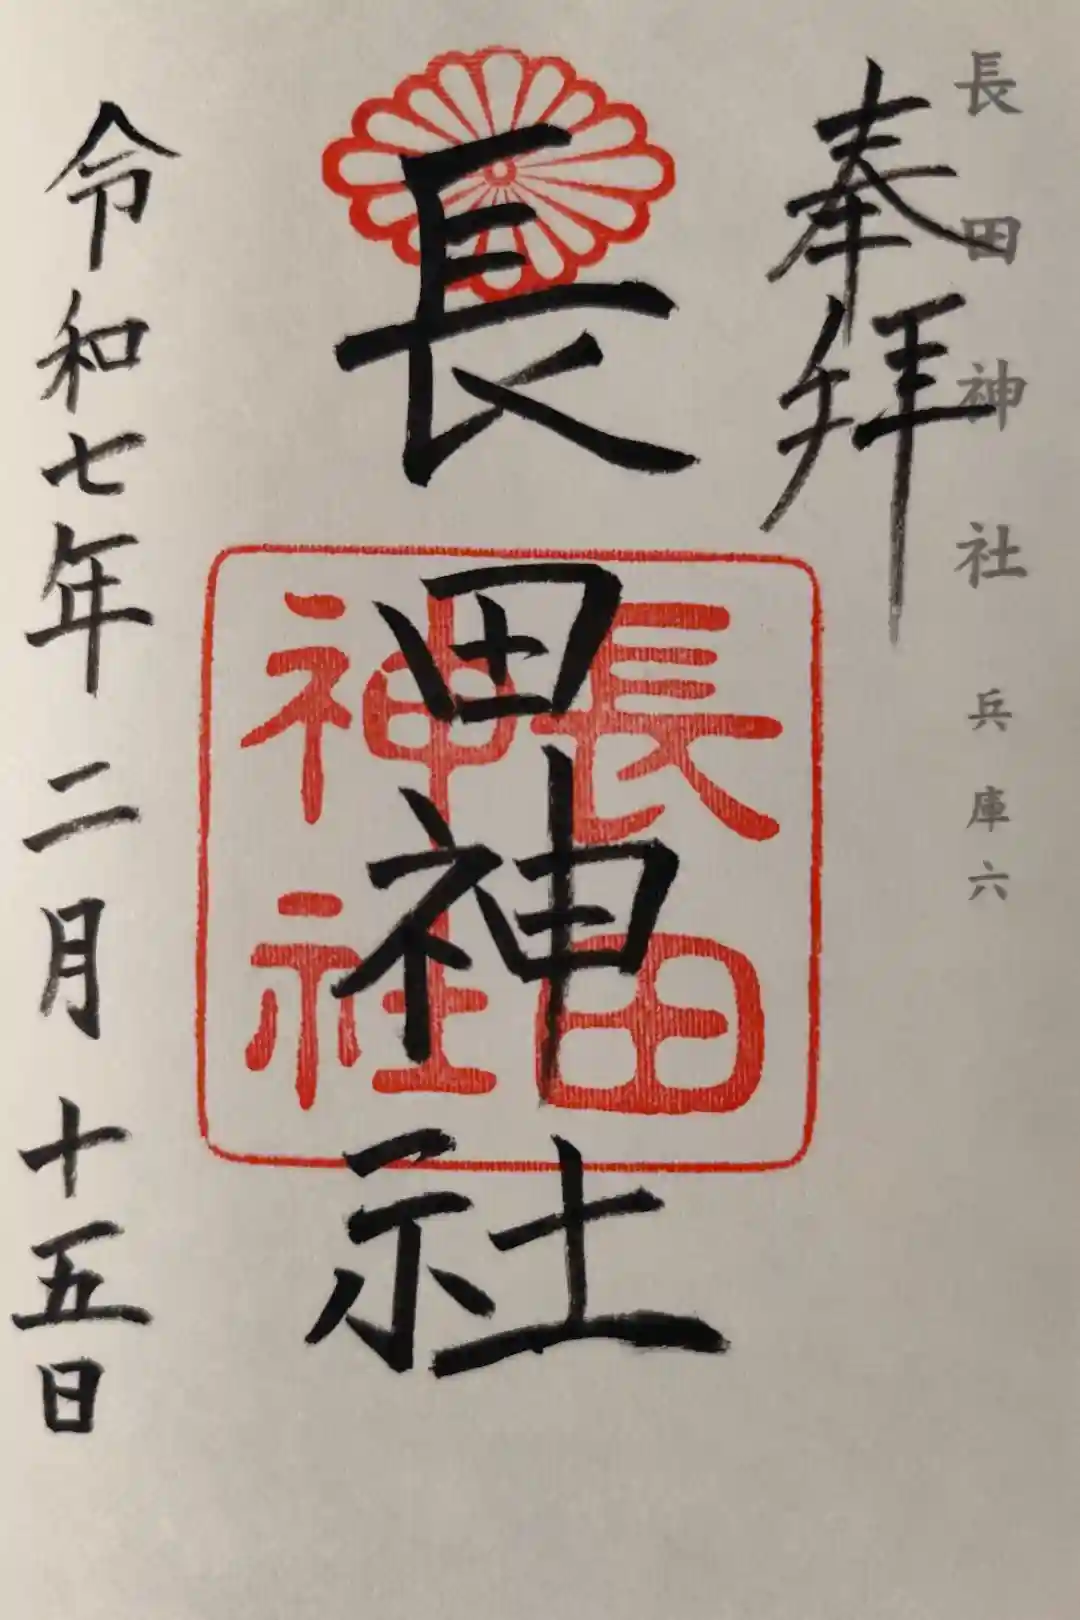 長田神社 兵庫六
奉拝
長田神社
長田
神社
令和七年二月十五日